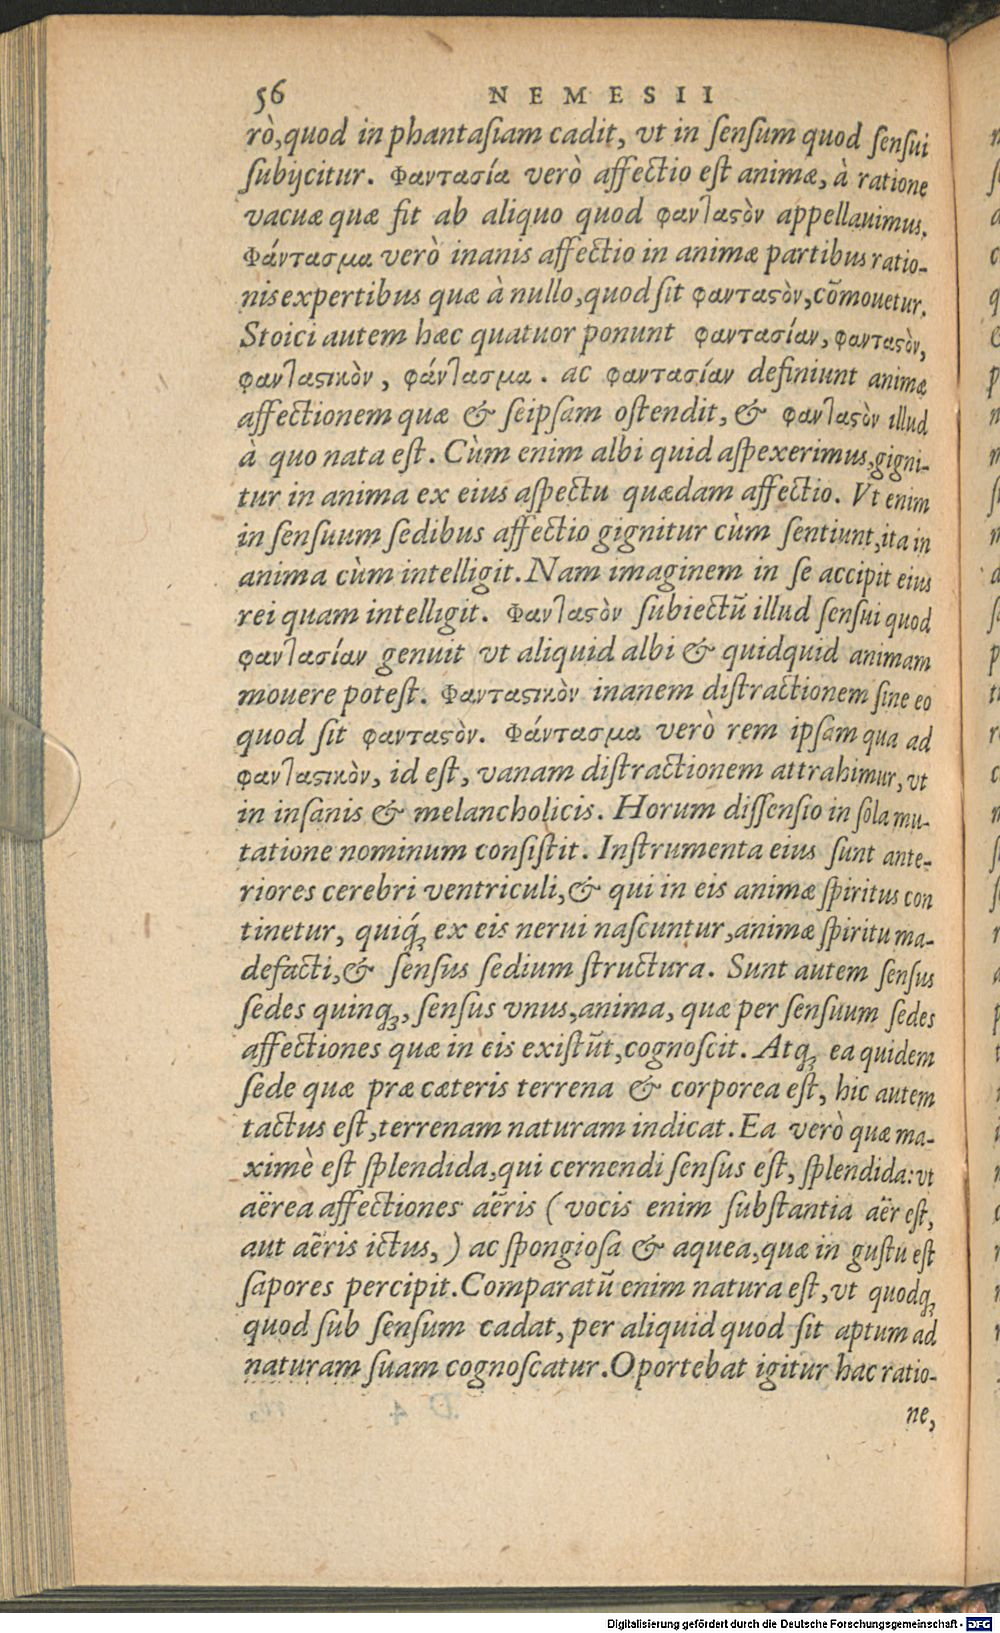 56 NEMESII
rò, quod in phantasiam cadit, vt in sensum quod sensui
subijcitur. Φαντασία verò affectio est animæ, à ratione
vacuæ quæ fit ab aliquo quod φανταςὸν appellauimus.
Φάντασμα verò inanis affectio in animæ partibus ratio-
nis expertibus quæ à nullo, quod sit φανταςὸν, cōmouetur.
Stoici autem hæc quatuor ponunt φαντασίαν, φανταςὸν,
φανταςικὸν, φάντασμα. ac φαντασίαν definiunt animæ
affectionem quæ & seipsam ostendit, & φανταςὸν illud
à quo nata est. Cùm enim albi quid aspexerimus, gigni-
tur in anima ex eius aspectu quædam affectio. Vt enim
in sensuum sedibus affectio gignitur cùm sentiunt, ita in
anima cùm intelligit. Nam imaginem in se accipit eius
rei quam intelligit. Φανταςὸν subiectū illud sensui quod
φαντασίαν genuit vt aliquid albi & quidquid animam
mouere potest. Φανταςικὸν inanem distractionem sine eo
quod sit φανταςὸν. Φάντασμα verò rem ipsam qua ad
φανταςικὸν, id est, vanam distractionem attrahimur, vt
in insanis & melancholicis. Horum dissensio in sola mu-
tatione nominum consistit. Instrumenta eius sunt ante-
riores cerebri ventriculi, & qui in eis animæ spiritus con
tinetur, quiq́; ex eis nerui nascuntur, animæ spiritu ma-
defacti, & sensus sedium structura. Sunt autem sensus
sedes quinq;, sensus vnus, anima, quæ per sensuum sedes
affectiones quæ in eis existūt, cognoscit. Atq; ea quidem
sede quæ præ cæteris terrena & corporea est, hic autem
tactus est, terrenam naturam indicat. Ea verò quæ ma-
ximè est splendida, qui cernendi sensus est, splendida: vt
aërea affectiones aëris ( vocis enim substantia aër est,
aut aëris ictus, ) ac spongiosa & aquea, quæ in gustu est
sapores percipit. Comparatū enim natura est, vt quodq;
quod sub sensum cadat, per aliquid quod sit aptum ad
naturam suam cognoscatur. Oportebat igitur hac ratio-
ne,
Digitalisierung gefördert durch die Deutsche Forschungsgemeinschaft - DFG